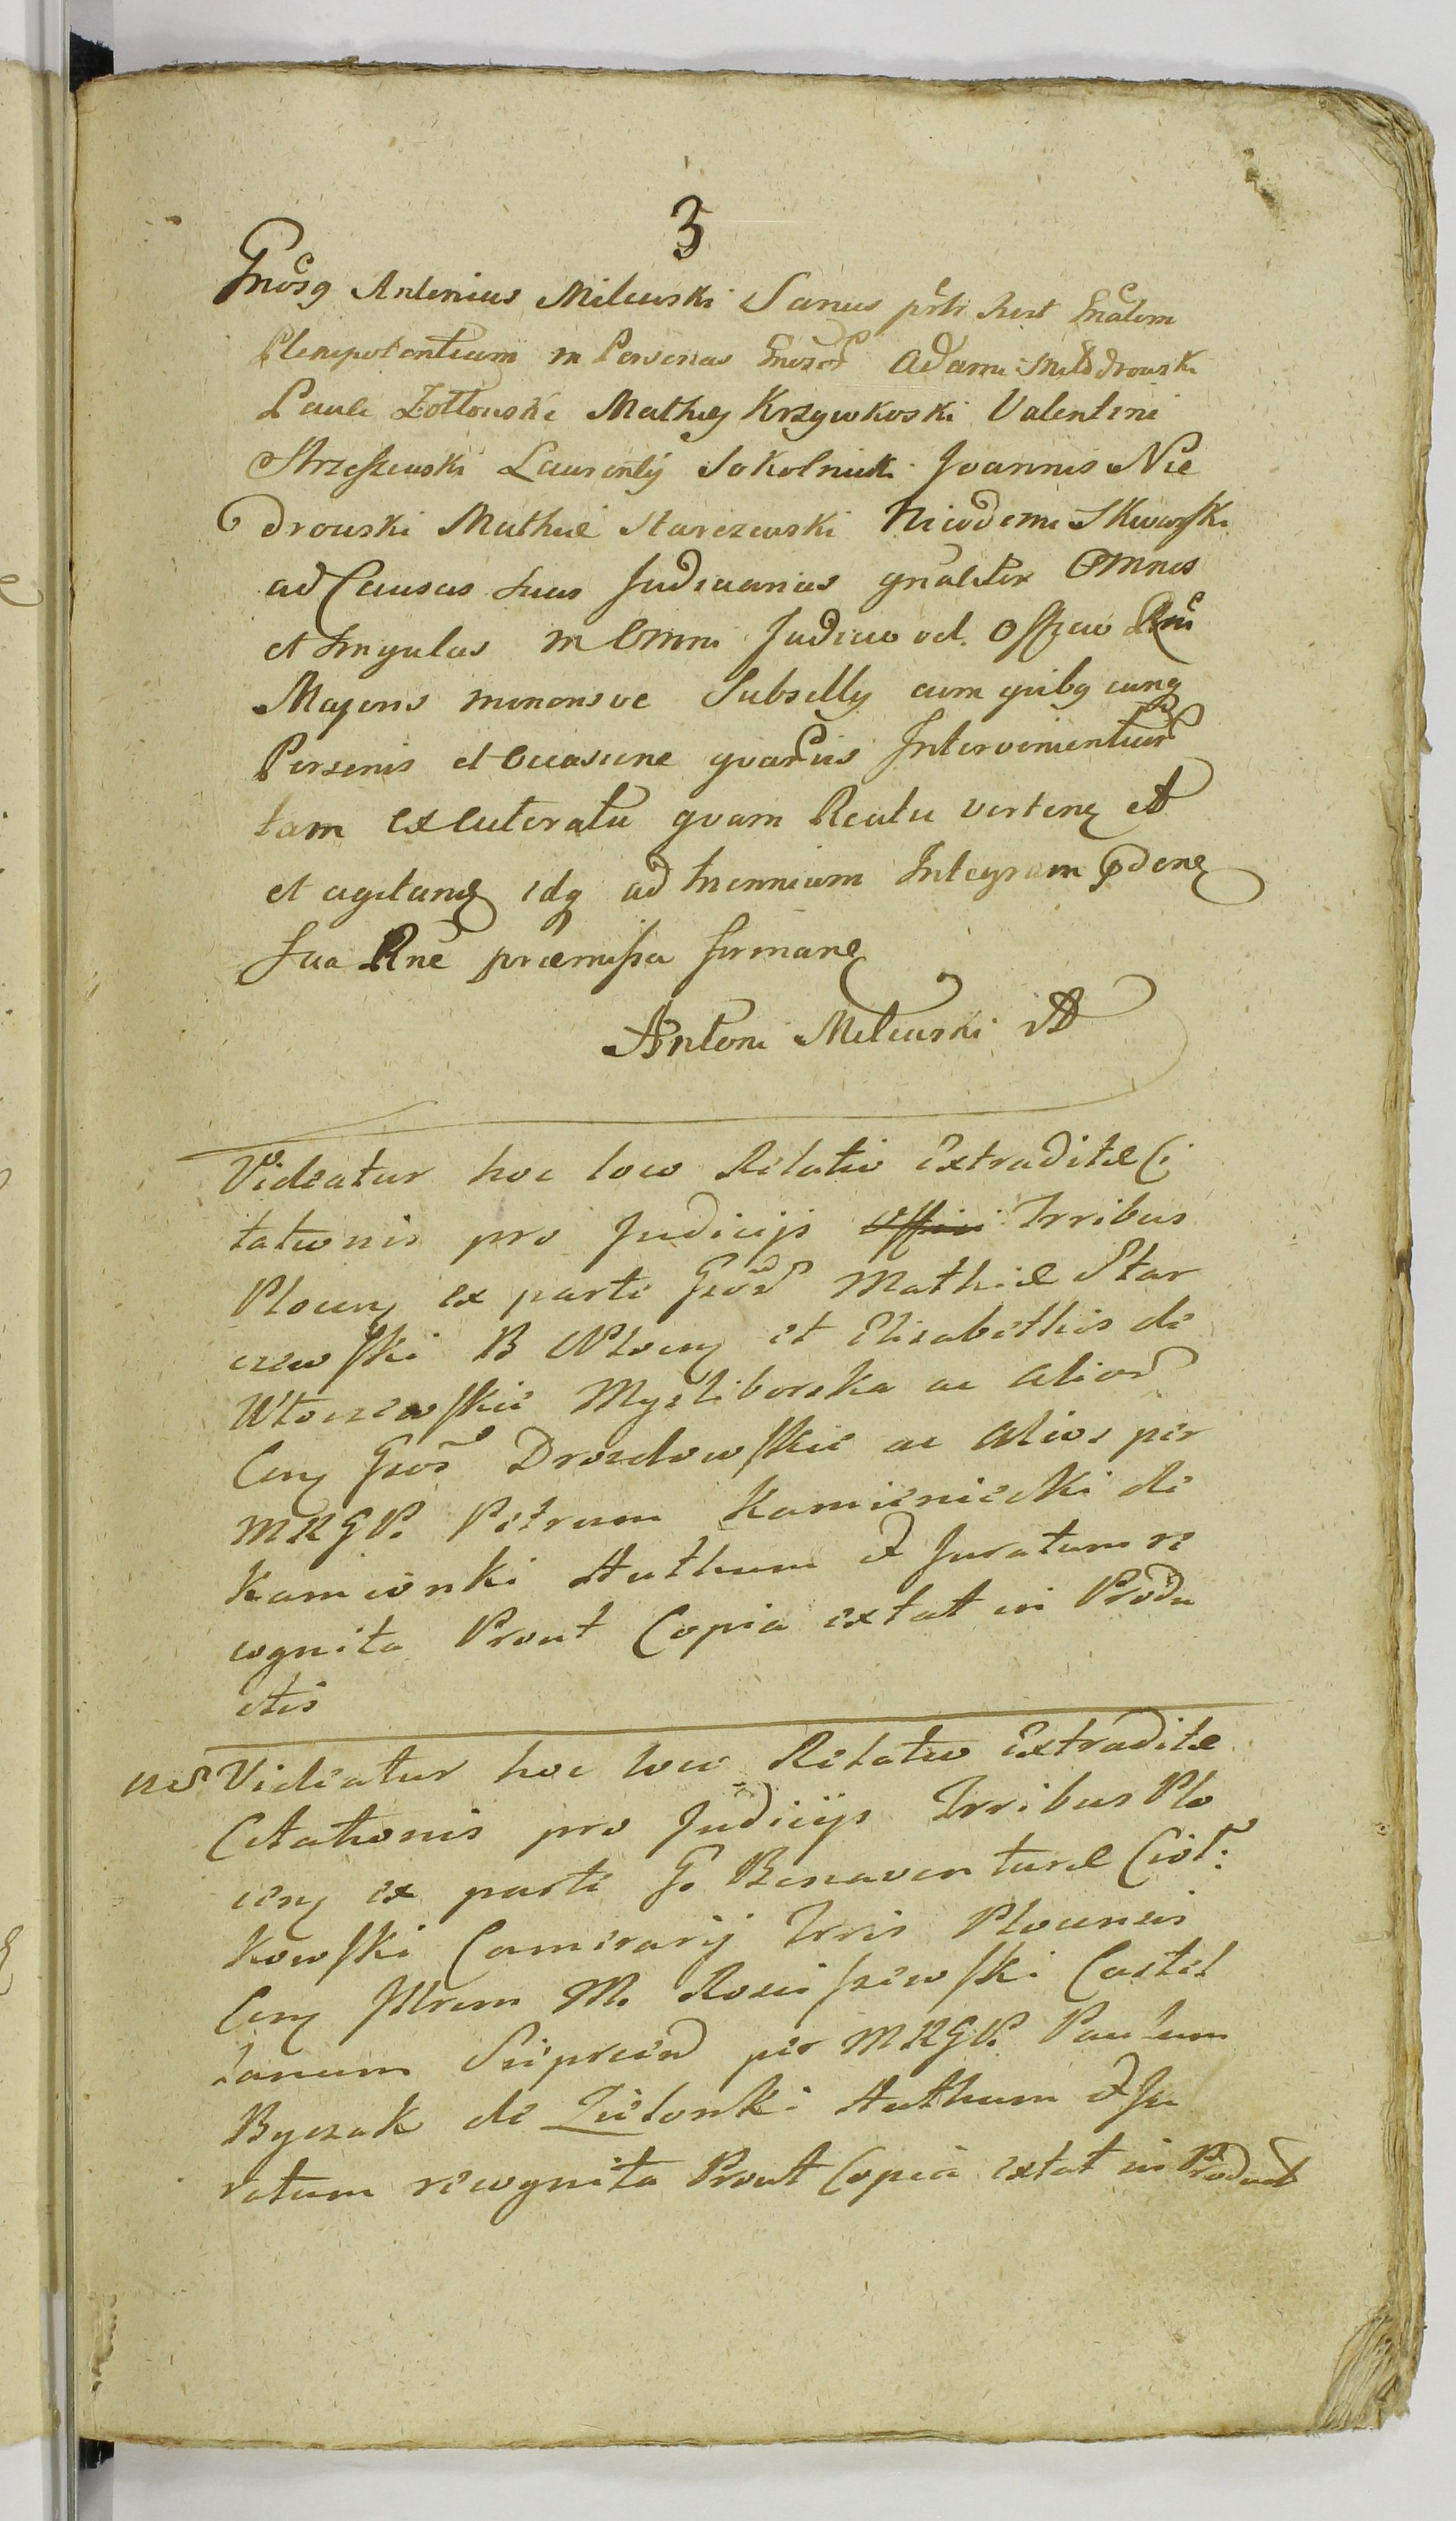 3
Gnosq Antonius Milewski Sanus prti rect Gnalem
Plenipotentiam in Personas Gnosor Adami
Pauli Zołtowski Mathię Krzywkoski Valentini
Strzeszewski Laurentÿ Sokolnicki Joannis Nie
drouski Mathiæ Starczewski Nicodemi Skwarski
ad Causas suas Judiciarias gnaliter Omnes
et singulas in Omni Judicio vel Officio Rni
Majoris minorisve Subsellÿ cum quibq cunq
Personis et Occasione quarvis Intervenientiur
tam ex cutoratu quam Reatu verten et
et agitand idq ad triennium Integrum
Sua Rne præmissa firmane
Antoni Milewski
Videatur hoc loco Relatio Extraditæ Ci
tationis pro Judicijs Trribus
Plocen ex parte Gnor Mathiæ Star
czewski B Płocen et Elisabethis de
Włoczewskie Mysliborska ac alior
Con Gnos Drozdowskie ac alios per
MRGP. Petrum Kamieniecki de
Kamionki Authum et Juratum re
cognita Prout Copia extat in Produ
ctis
Videatur hoc loco Relatio Extraditæ
Citationis pro Judicijs Trribus Plo
cen ex parte G. Bonaventuræ Ciot:
kowski Camerarÿ Trris Plocensis
Con Illrem M. Rosciszewski Castel
lanum Sieprcen per MRGP. Paulum
Byczak de Zielonki Authum et Ju
ratum recognita Prout Copia extat in Product